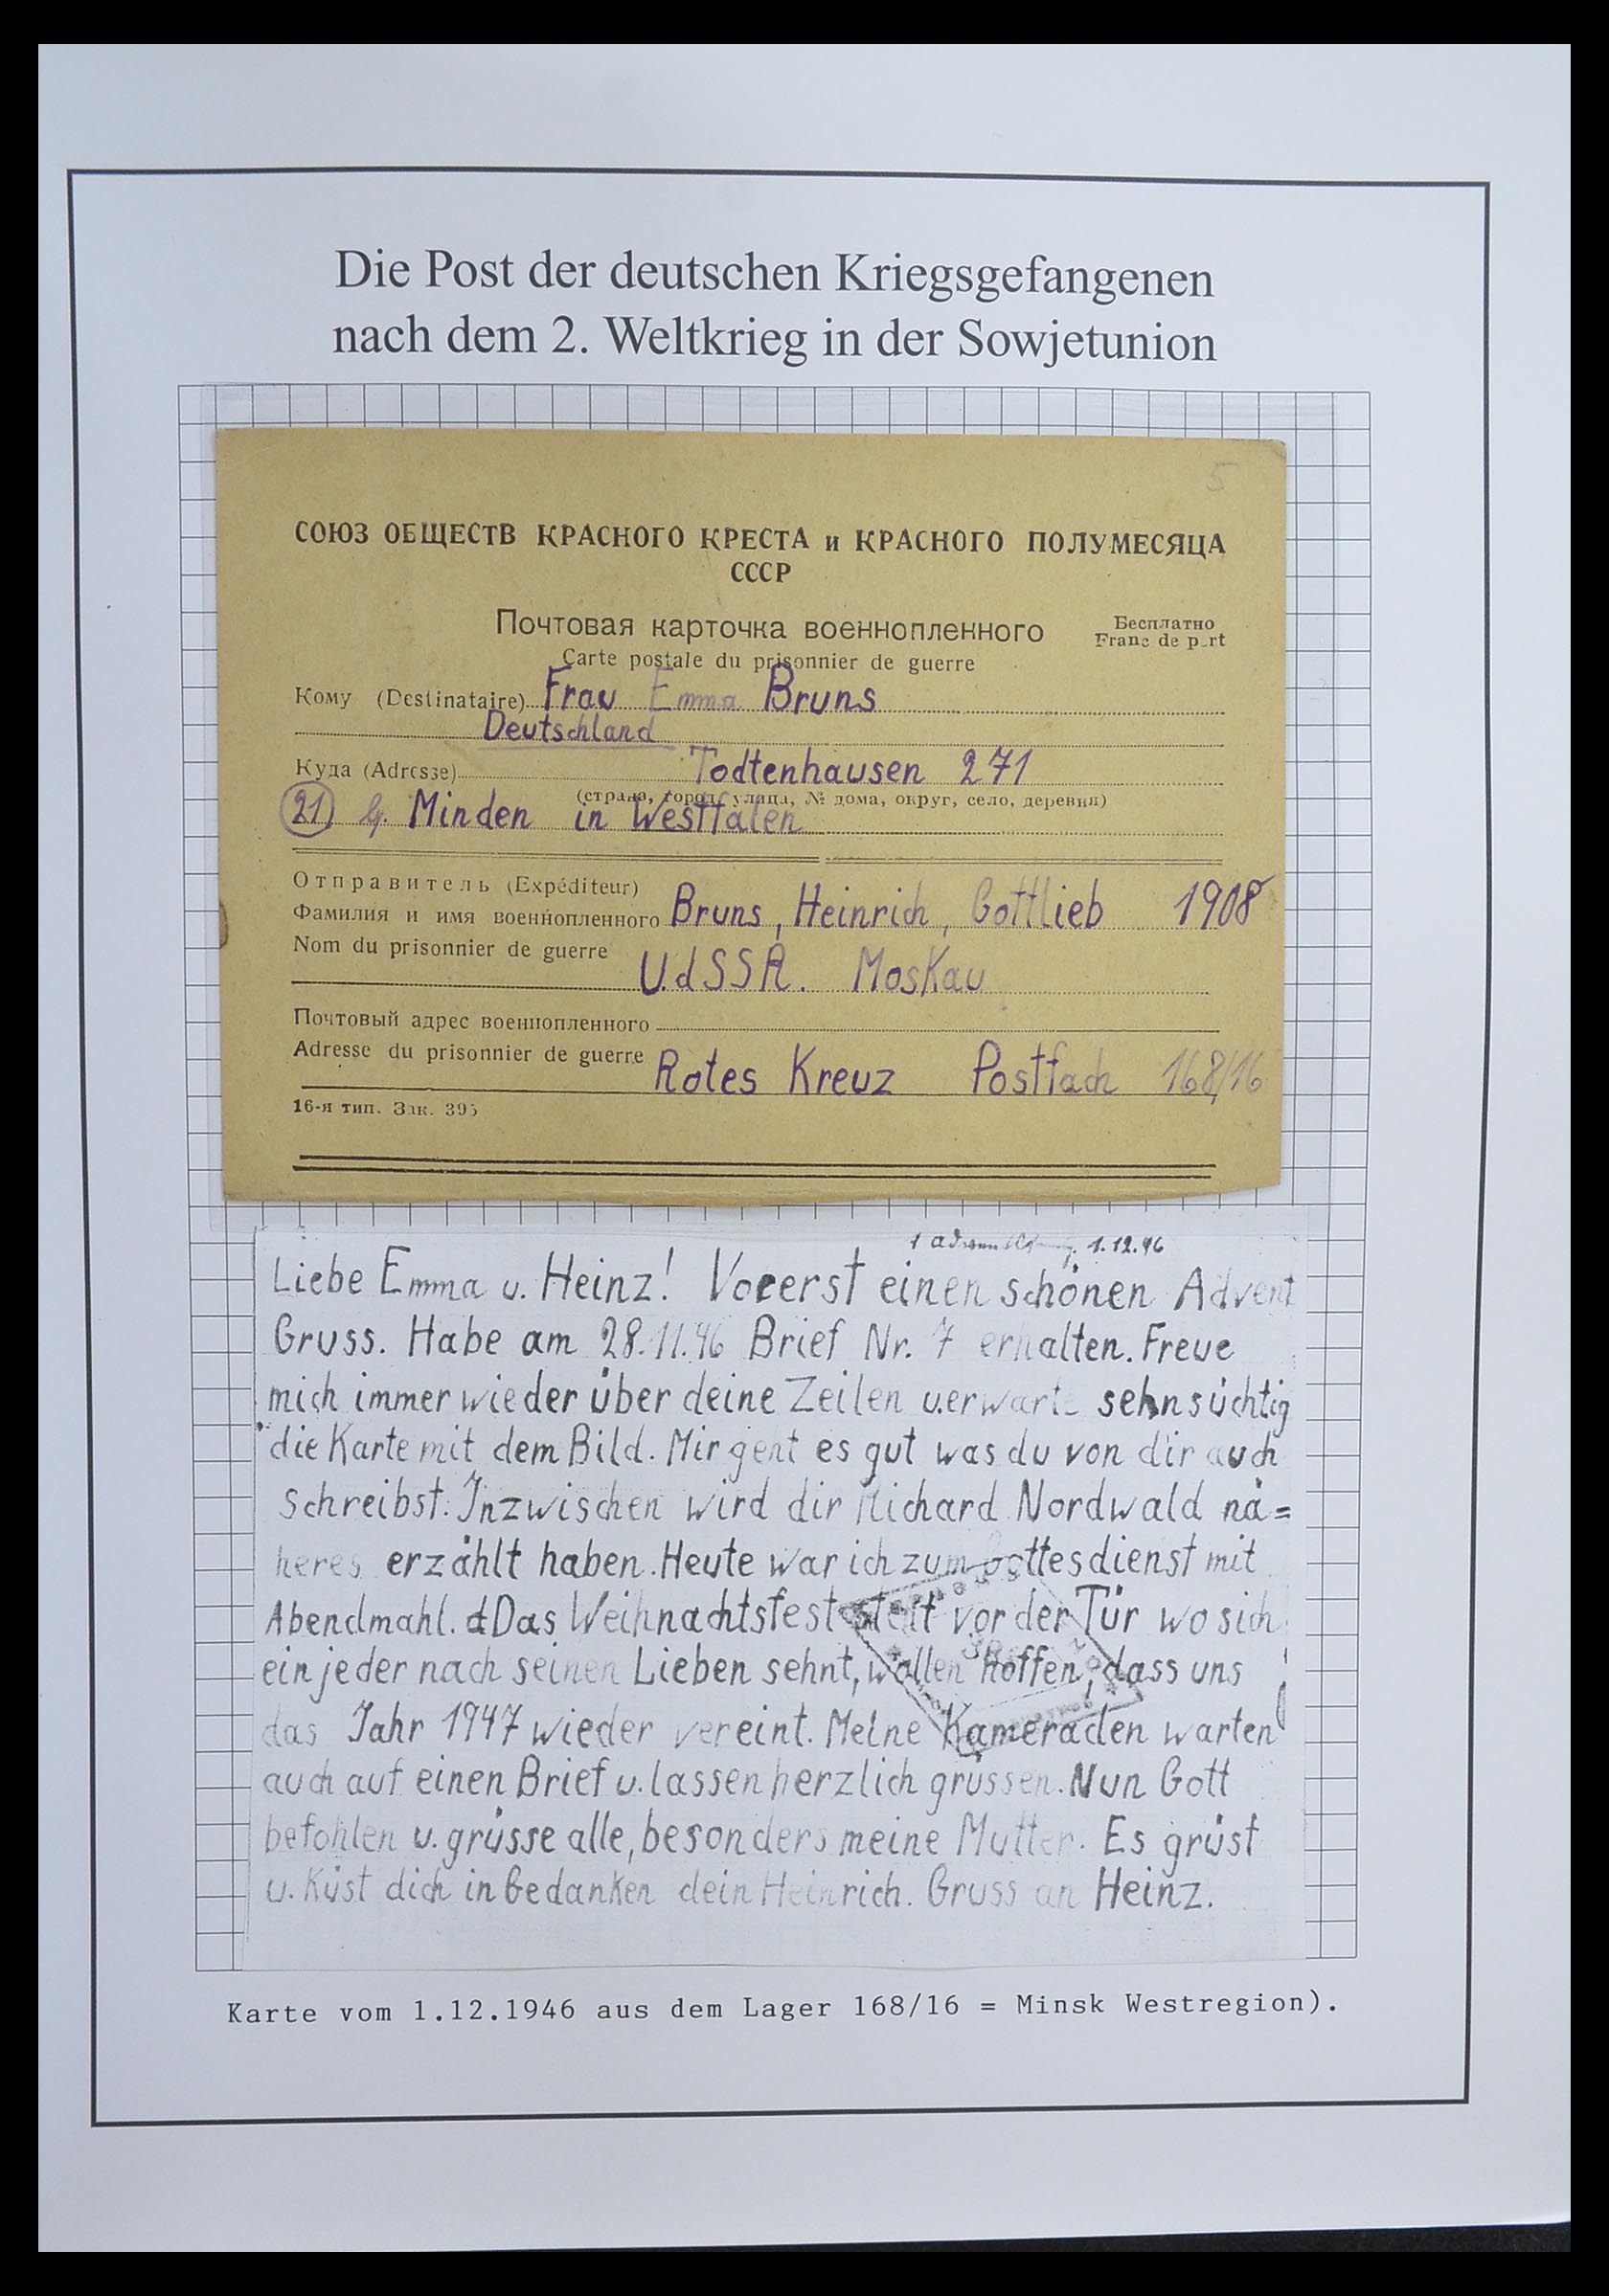 Die Post der deutschen Kriegsgefangenen
nach dem 2. Weltkrieg in der Sowjetunion
5
СОЮЗ ОБЩЕСТВ КРАСНОГО КРЕСТА и КРАСНОГО ПОЛУМЕСЯЦА
СССР
Почтовая карточка военнопленного
Бесплатно
Franc de port
Carte postale du prisonnier de guerre
Кому (Destinataire) Frau Emma Bruns
Deutschland
Куда (Adresse) Todtenhausen 271
(страна, город, улица, № дома, округ, село, деревня)
21 Minden in Westfalen
Отправитель (Expéditeur)
Фамилия и имя военнопленного Bruns, Heinrich, Gottlieb 1908
Nom du prisonnier de guerre
UdSSR. Moskau
Почтовый адрес военнопленного
Adresse du prisonnier de guerre Rotes Kreuz Postfach 168/16
16-я тип. Зак. 395
1.12.46
Liebe Emma u. Heinz! Vorerst einen schönen Advent
Gruss. Habe am 28.11.46 Brief Nr. 7 erhalten. Freue
mich immer wieder über deine Zeilen u. erwarte sehnsüchtig
die Karte mit dem Bild. Mir geht es gut was du von dir auch
schreibst. Inzwischen wird dir Richard Nordwald nä=
heres erzählt haben. Heute war ich zum Gottesdienst mit
Abendmahl. Das Weihnachtsfest steht vor der Tür wo sich
ein jeder nach seinen Lieben sehnt, wollen hoffen, dass uns
das Jahr 1947 wieder vereint. Meine Kameraden warten
auch auf einen Brief u. lassen herzlich grüssen. Nun Gott
befohlen u. grüsse alle, besonders meine Mutter. Es grüst
u. küst dich in Gedanken dein Heinrich. Gruss an Heinz.
Karte vom 1.12.1946 aus dem Lager 168/16 = Minsk Westregion).